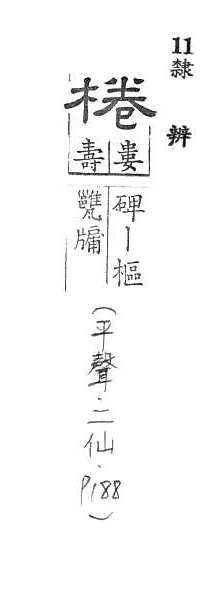 11隸辨
棬
婁壽
碑丨樞
甕牖
(平聲·二仙·P188)